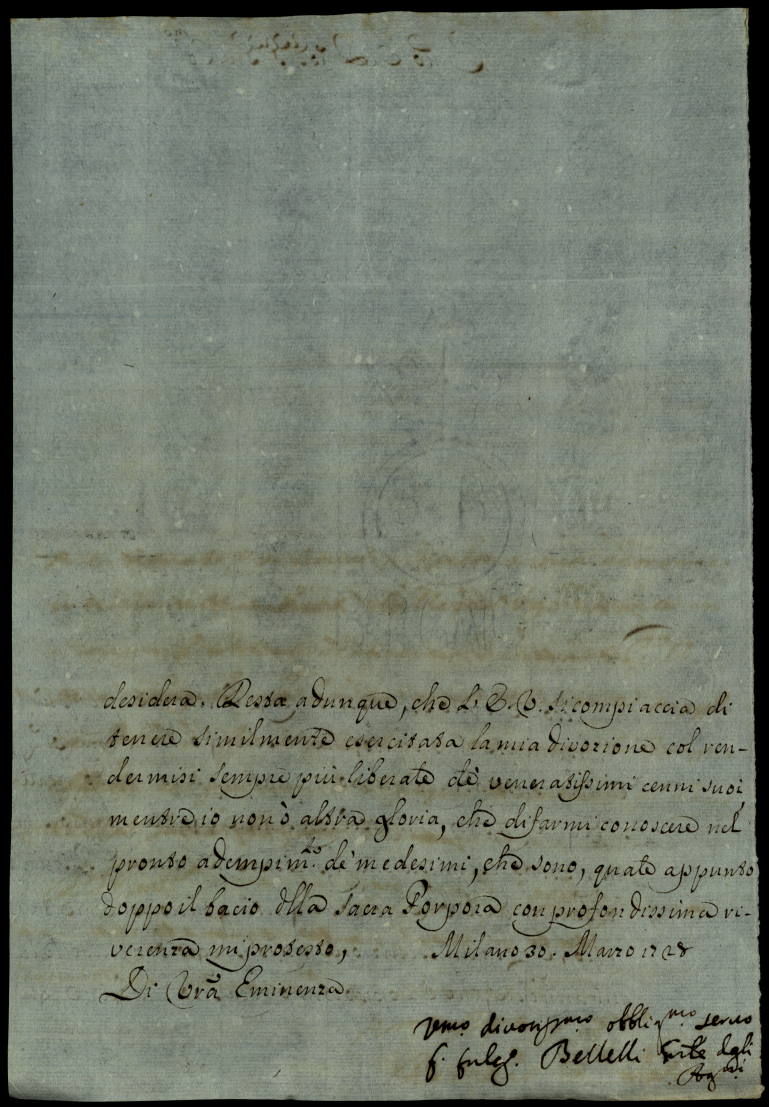 desidera. Resta adunque, che l'E. V. si compiaccia di
tenere similmente esercitata la mia divozione col ren-
dermisi sempre più liberale de' veneratissimi cenni suoi
mentre io non ò altra gloria, che di farmi conoscere nel
pronto adempim.to de' medesimi, che sono, quale appunto
doppo il bacio della Sacra Porpora con profondissima ri-
verenza mi protesto, Milano 30. Marzo 1728
Di Vrã Eminenza
divotissmo obbligmo servo
f. Fulg. Bellelli degli